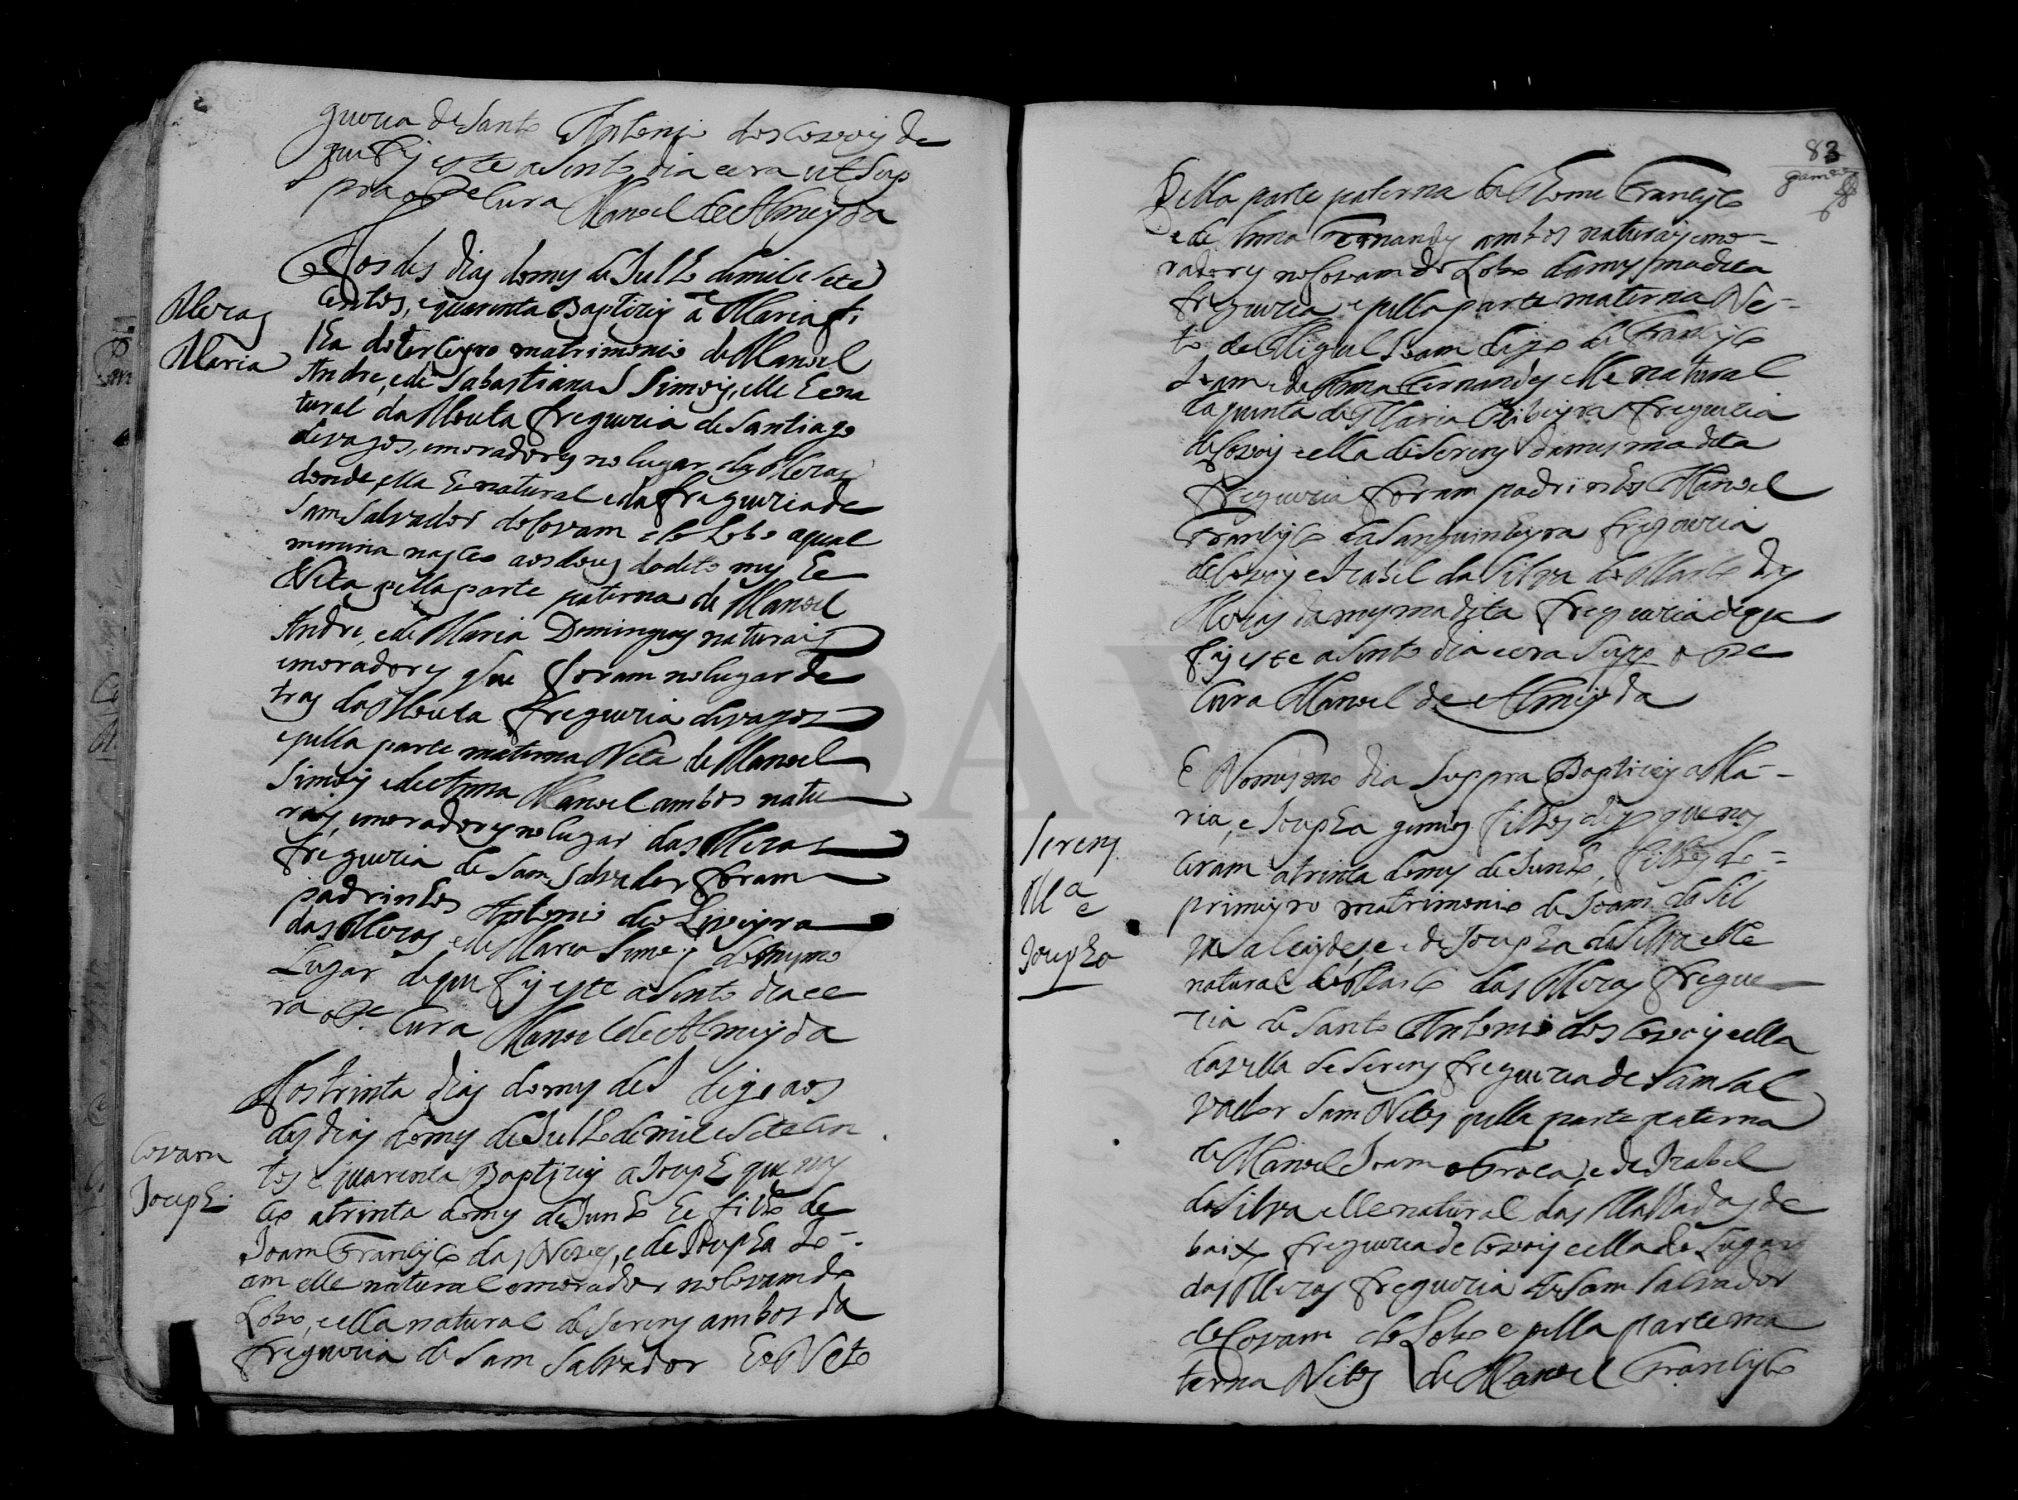 guezia de Santo Antonio dos Covois de
que fis este asento dia e era ut Sup
pra o Pe Cura Manoel de Almeyda
Mezas
Maria
Aos des dias do mes de Julho de mil e sete
centos, e quarenta Baptizei a Maria fi
lha do terceyro matrimonio de Manoel
Andre, e de Sabastiana Simois, elle he na
tural da Mouta freguezia de Santiago
de vagos, e moradores no lugar das Mezas
donde ella he natural e da freguezia de
Sam Salvador do Covam do Lobo a qual
menina nasceo aos dous do dito mes he
Neta pella parte paterna de Manoel
Andre, e de Maria Domingues naturais
e moradores que foram no lugar de
tras da Mouta freguezia de vagos
e pella parte materna Neta de Manoel
Simois e de Anna Manoel ambos natu
rais, e moradores no lugar das Mezas
freguezia de Sam Salvador foram
padrinhos Antonio de Oliveyra
das Mezas e de Maria Simois do mesmo
Lugar de que fis este asento dia e e
ra o Pe Cura Manoel de Almeyda
Covam
Joseph
Aos trinta dias do mes de J digo aos
des dias do mes de Julho de mil e sete cen
tos e quarenta Baptizei a Joseph que nas
ceo a trinta do mes de Junho he filho de
Joam Francisco das Neves, e de Josepha Jo-
am elle natural e morador no Covam do
Lobo, e ella natural de Serens ambos da
freguezia de Sam Salvador he Neto
83
Pella parte paterna de Thome Francisco
e de Anna Fernandes ambos naturais e mo-
radores no Covam do Lobo da mesma dita
freguezia e pella parte materna Ne-
to de Miguel Joam digo de Francisco
Joam e de Anna Fernandes elle natural
da quinta de Maria Ribeyra freguezia
de Covois e ella de Serens da mesma dita
freguezia foram padrinhos Manoel
Francisco da Sanguinheyra freguezia
de Covois e Izabel da Silva do Marco das
Mezas da mesma dita freguezia de que
fis este asento dia e era Supp o Pe
Cura Manoel de Almeyda
Serens
Ma
e
Josepha
E No mesmo dia Suppra Baptizei a Ma-
ria, e Josepha gemios filhos digo que nas
ceram a trinta do mes de Junho, filhos do
primeyro matrimonio de Joam da Sil
va e de Josepha da Silva elle
natural do Marco das Mezas fregue
zia de Santo Antonio dos Covois e ella
da villa de Serens freguezia de Sam Sal
vador Sam Netos pella parte paterna
de Manoel Joam e de Izabel
da Silva elle natural das Malhadas de
baixo freguezia de Covois e ella do Lugar
das Mezas freguezia de Sam Salvador
de Covam do Lobo e pella parte ma
terna Netos de Manoel Francisco